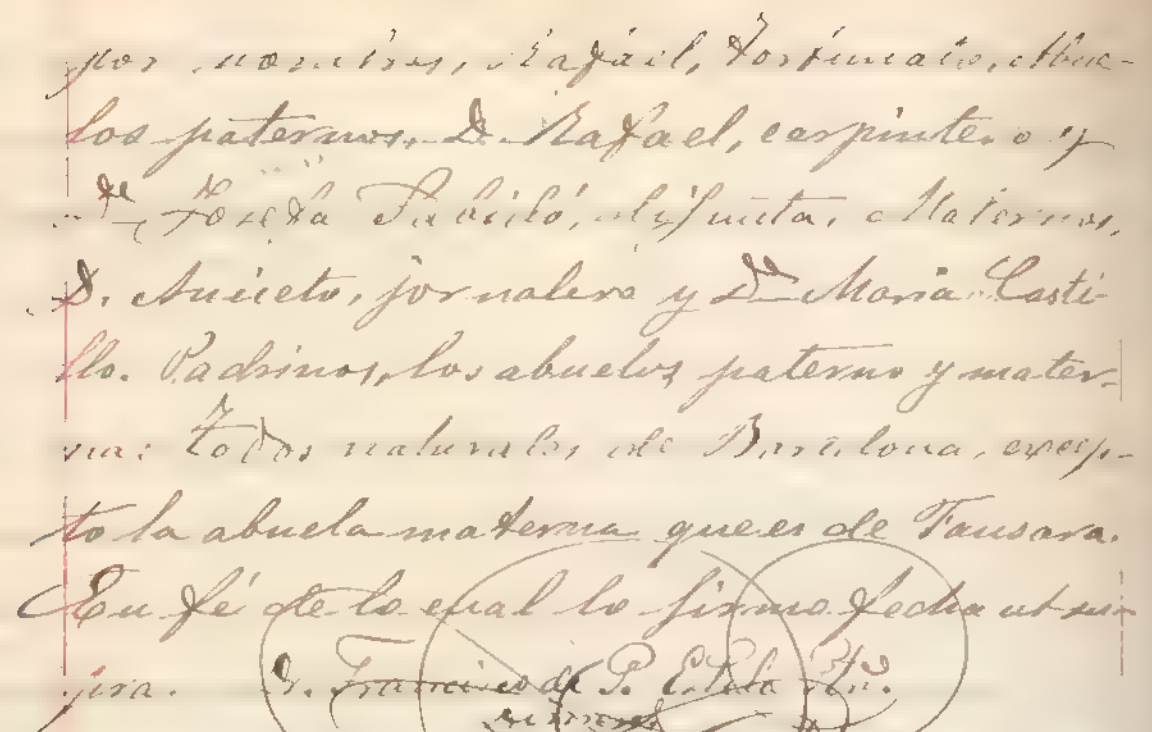 por nombres, Rafáil, Fortunato. Abue-
los paternos. D. Rafael, carpintero y
Dª Josefa Subiló, difunta. Maternos,
D. Aniceto, jornalero y Dª Maria Casti-
llo. Padrinos, los abuelos paterno y mater-
na: Todos naturales de Barcelona, excep-
to la abuela materna que es de Tansara.
En fé de lo cual lo firmo fecha ut su-
pra. Dr. Francisco de P. Pbro.